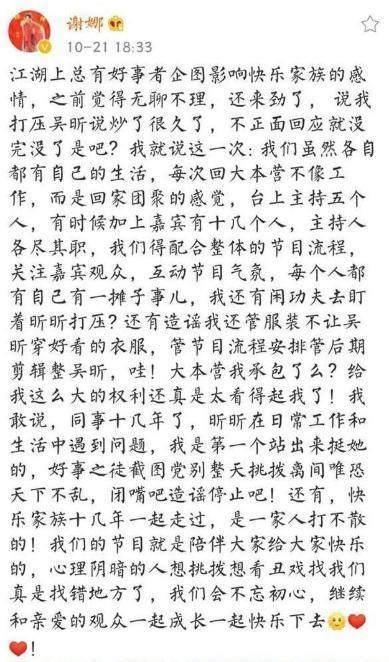 谢娜
10-21 18:33
江湖上总有好事者企图影响快乐家族的感
情，之前觉得无聊不理，还来劲了，说我
打压吴昕说炒了很久了，不正面回应就没
完没了是吧？我就说这一次：我们虽然各自
都有自己的生活，每次回大本营不像工
作，而是回家团聚的感觉，台上主持五个
人，有时候加上嘉宾有十几个人，主持人
各尽其职，我们得配合整体的节目流程，
关注嘉宾观众，互动节目气氛，每个人都
有自己有一摊子事儿，我还有闲功夫去盯
着昕昕打压？还有造谣我还管服装不让吴
昕穿好看的衣服，管节目流程安排管后期
剪辑整吴昕，哇！大本营我承包了么？给
我这么大的权利还真是太看得起我了！我
敢说，同事十几年了，昕昕在日常工作和
生活中遇到问题，我是第一个站出来挺她
的，好事之徒截图党别整天挑拨离间唯恐
天下不乱，闭嘴吧造谣停止吧！还有，快
乐家族十几年一起走过，是一家人打不散
的！我们的节目就是陪伴大家给大家快乐
的，心理阴暗的人想挑拨想看丑戏找我们
真是找错地方了，我们会不忘初心，继续
和亲爱的观众一起成长一起快乐下去🙂❤️
❤️！